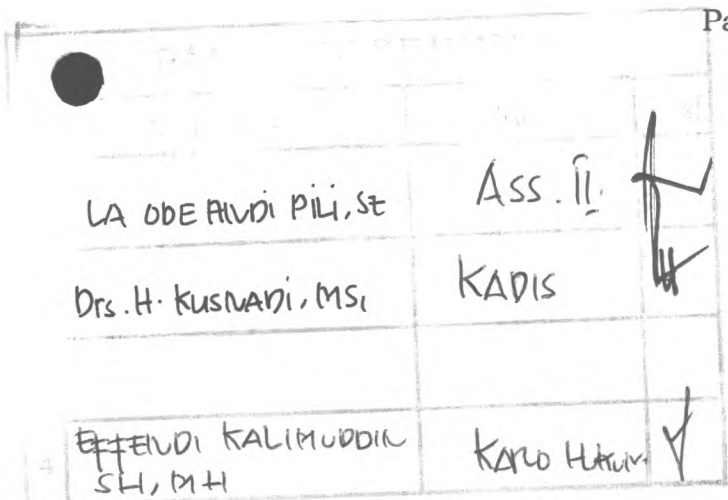 Pa
LA ODE ANDI PILI, SE ASS. II.
Drs. H. KUSNADI, MSi KADIS
EFFENDI KALIMUDDIN KARO HUKUM
SH, MH